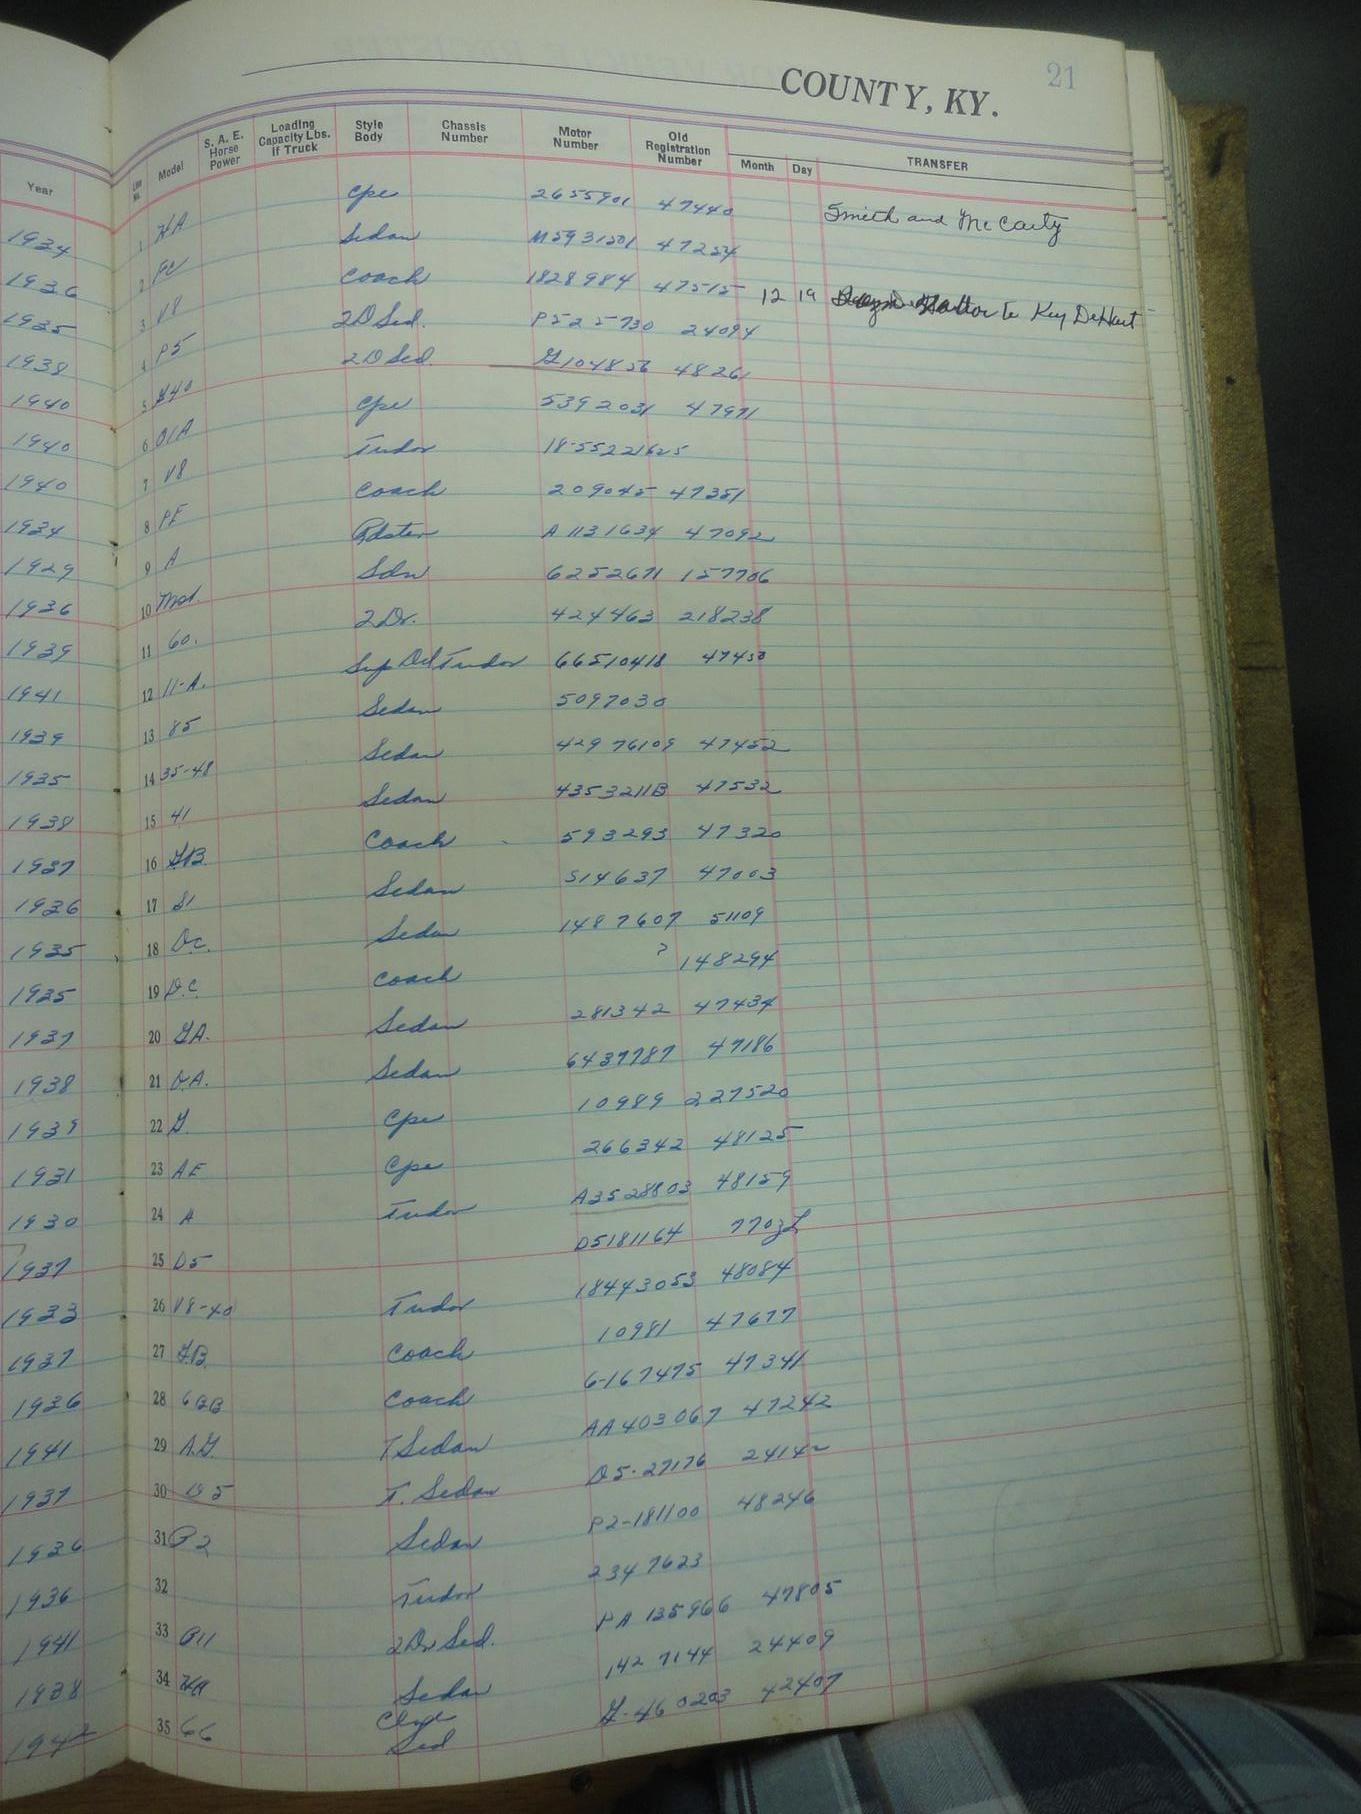 21
COUNTY, KY.
Year Line No. Model S. A. E. Horse Power Loading Capacity Lbs. if Truck Style Body Chassis Number Motor Number Old Registration Number Month Day TRANSFER
1934 1 HA Cpe 2655901 47440 Smith and McCarty
1936 2 FC Sedan M5931501 47254
1935 3 V8 Coach 1828984 47515 12 19 to Key DeHart
1938 4 P5 2D Sed. P525730 24094
1940 5 H40 2D Sed. G104856 48261
1940 6 01A Cpe 5392031 47971
1940 7 V8 Tudor 18-55221625
1934 8 PE Coach 209045 47351
1929 9 A Rdster A1131634 47092
1936 10 Mas. Sdn 6252671 157706
1939 11 60. 2 Dr. 424463 218238
1941 12 11-A. Sup Del Tudor 66510418 47450
1939 13 85 Sedan 5097030
1935 14 35-48 Sedan 42976109 47452
1938 15 41 Sedan 4353211B 47532
1937 16 GB Coach 593293 47320
1936 17 S1 Sedan 514637 47003
1935 18 Dc. Sedan 1487607 51109
1935 19 D.C. Coach ? 148294
1937 20 GA. Sedan 281342 47434
1938 21 DA. Sedan 6437787 47186
1939 22 G Cpe 10989 227520
1931 23 AE Cpe 266342 48125
1930 24 A Tudor A3528803 48159
1937 25 D5 D5181164
1933 26 V8-40 Tudor 18443053 48084
1937 27 GB. Coach 10981 47677
1936 28 6BB Coach 6-167475 47341
1941 29 A.G. T Sedan AA403067 47242
1937 30 D5 T. Sedan D5-27176 24142
1936 31 P2 Sedan P2-181100 48246
1936 32 Tudor 2347623
1941 33 P11 2Dr Sed. PA 125966 47805
1938 34 HA Sedan 1427144 24409
1942 35 66 Clype Sed G-460203 42407